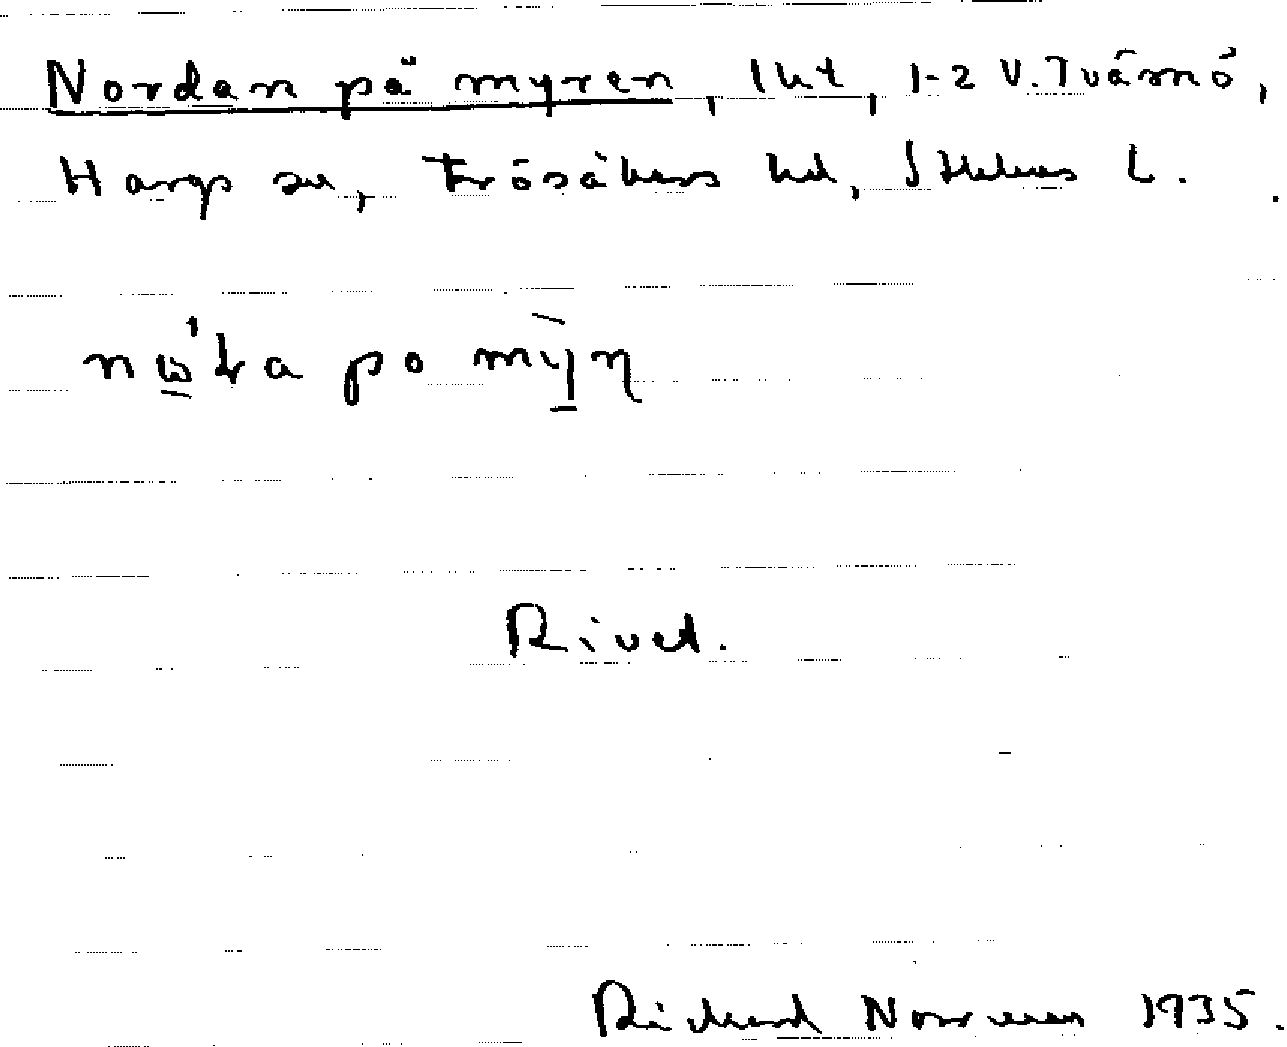 Nordan på myren, lht, 1-2 V. Tvärnö,
Hargs sn, Frösåkers hd, Sthlms L.
po
Rivet.
Rickard Norrman 1935.